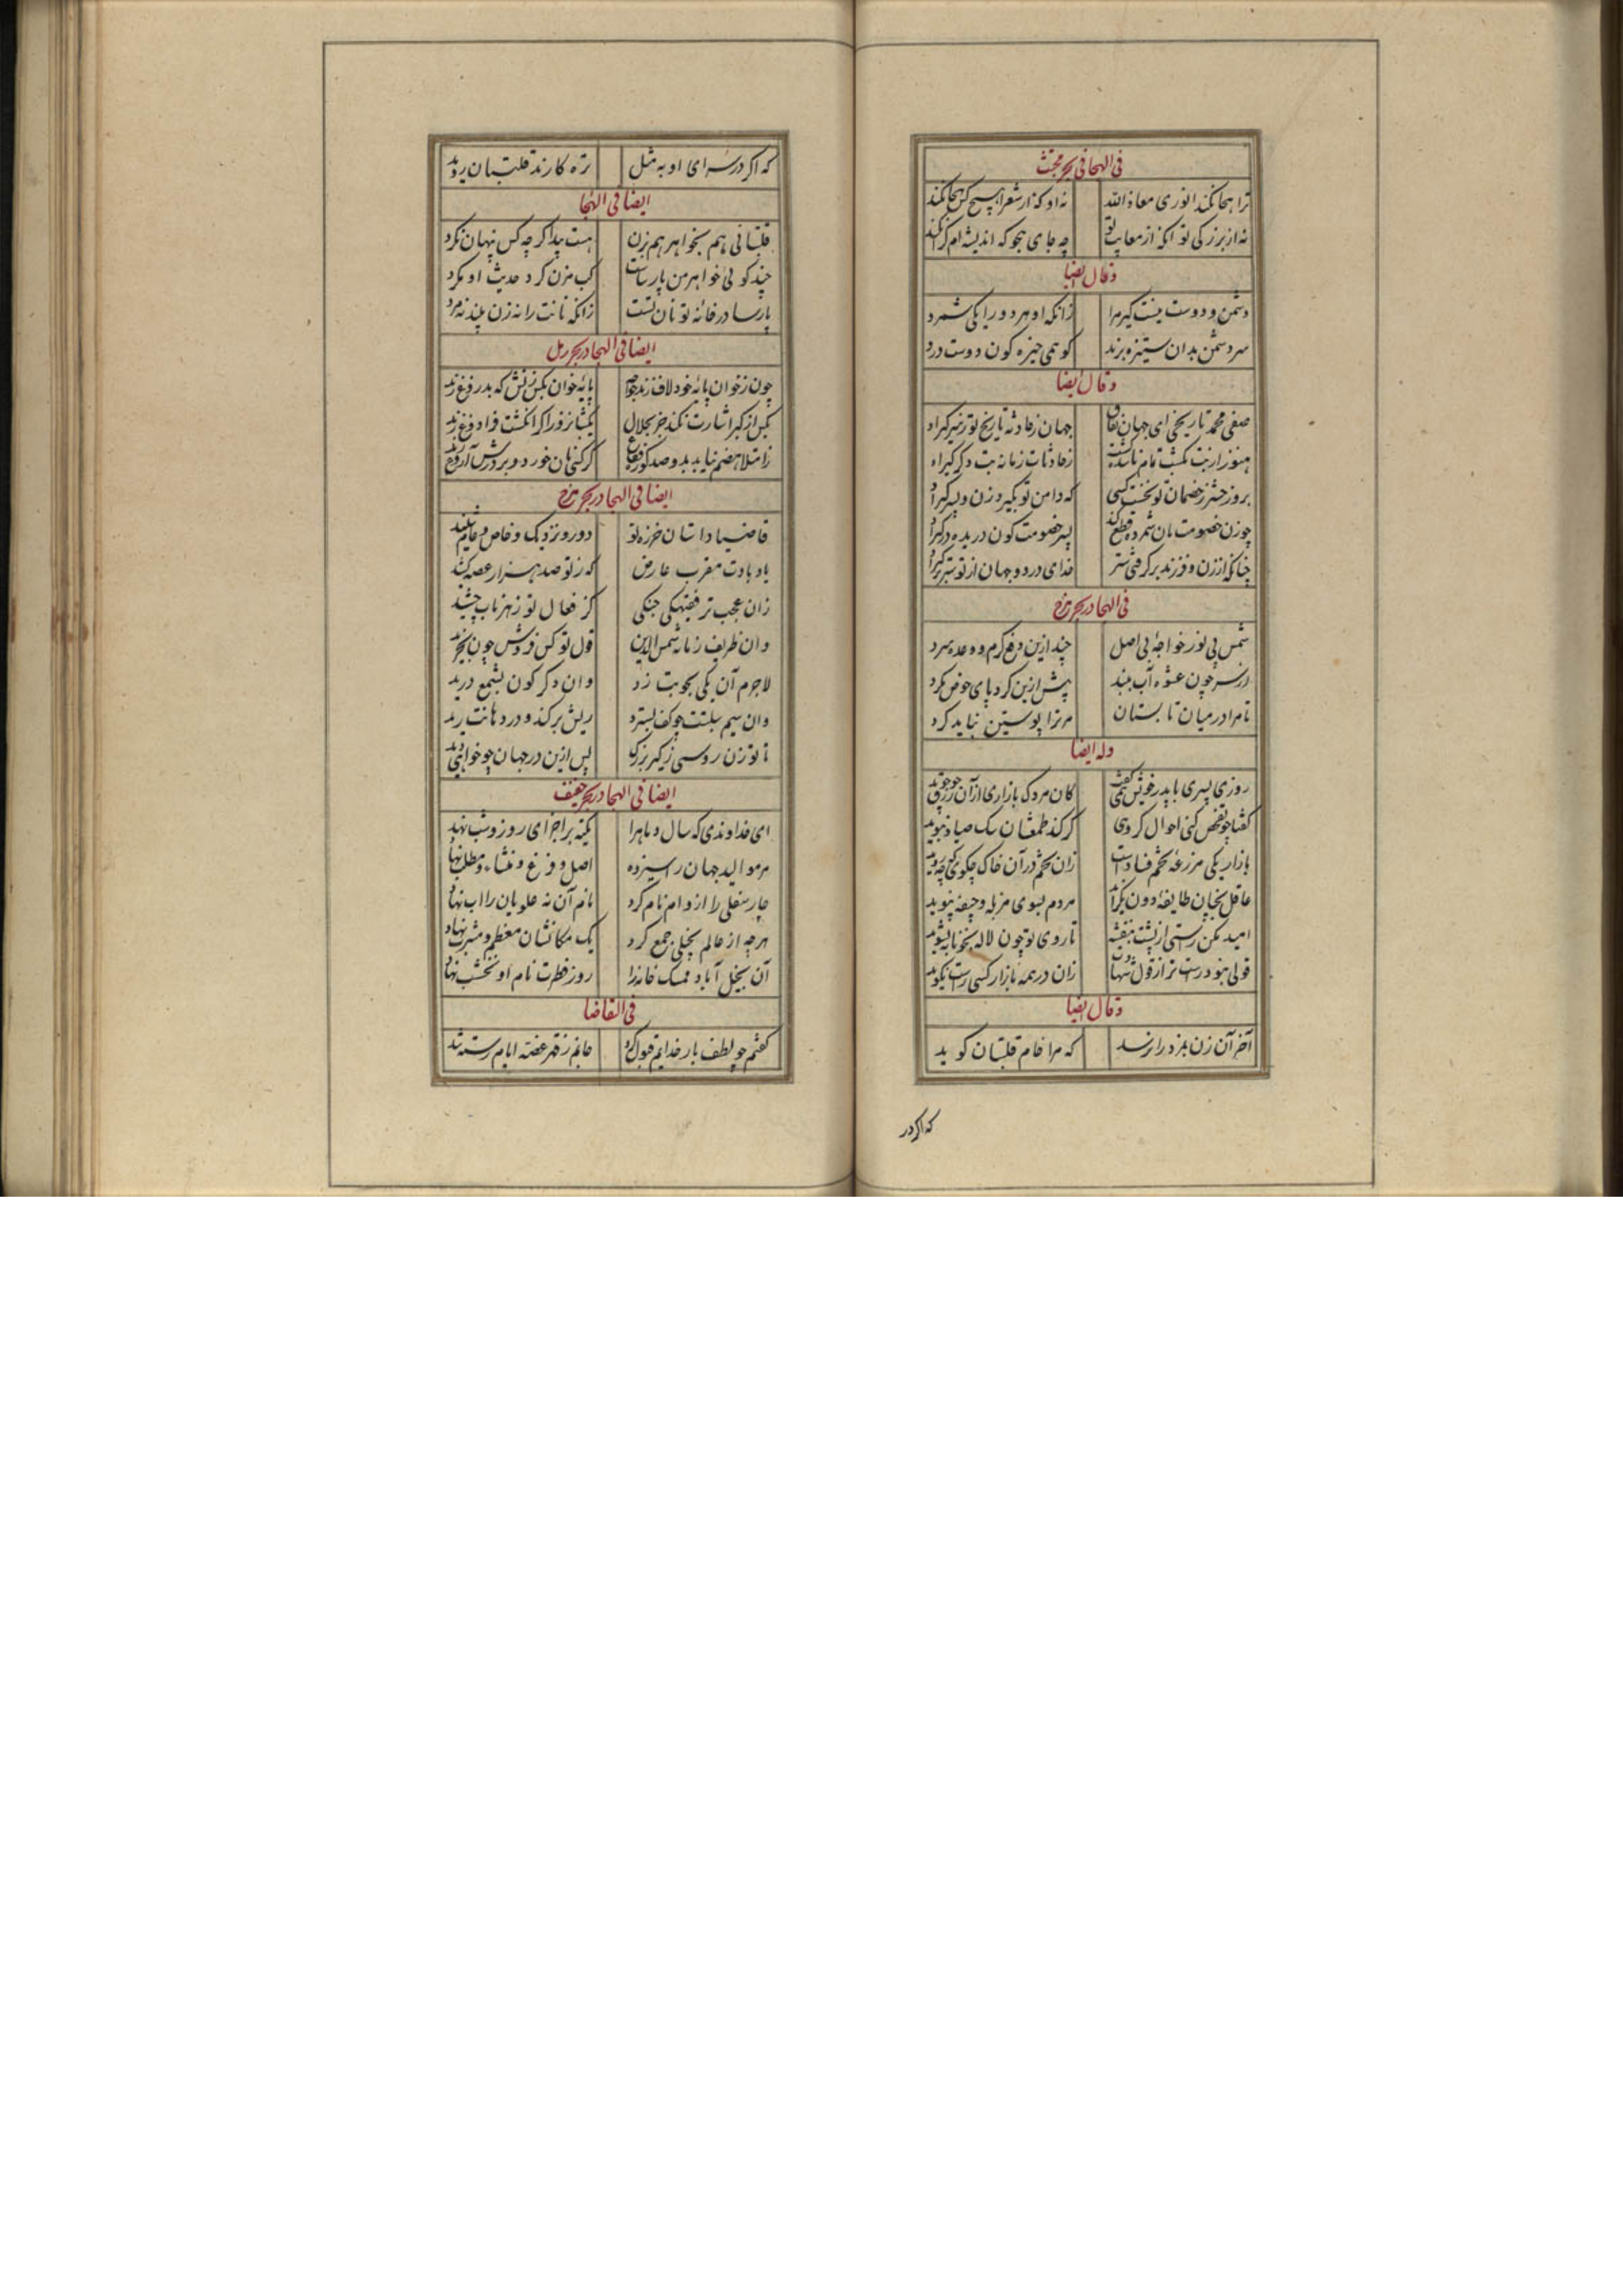 فی الهجا فی بحر مجتث
ترا هجا نکند انوری معاذ الله نه او که از شعرا هیچ کس هجا نکند
نه از بزرکی تو انکه از معایب تو چه جای هجو که اندیشه ام کرا نکند
و قال ایضا
دشمن و دوست نیست کیر مرا زانکه او هر دو را یکی شمرد
سر دشمن بدان ستیزه برند کو همی خیزه کون دوست درد
و قال ایضا
صفی محمد تاریخی ای جهان نفاق جهان ز حادثه تاریخ تو ز سر کیراد
هنوز از بت نکشت تمام ناشده حادثات زمانه بت دکر کیراد
بروز حشر ز خصمان تو نخست کسی که دامن تو بگیرد زن و پسر کیراد
چو زن خصومت نان شمرده قطع کند پسر خصومت کون دریده در کیراد
چنانکه از زن و فرزند بر کرفتی ستر خدای در دو جهان از تو ستر بر کیراد
فی الهجا در بحر هزج
شمس بی نور خواجه بی اصل چند ازین دفع کرم و وعده سرد
از سر چون عشوه آب ببند پیش ازین کرد پای حوض مکرد
تا مرا در میان تابستان مر ترا پوستین نباید کرد
وله ایضا
روزی پسری با پدر خویش کفتی کان مردک بازاری از آن رزق چو جوید
کفتا چو تفحص کنی احوال کروهی کز کند طمعشان سک صیاد ببوید
بازار یکی مزرعه تخم فسادست زان تخم در آن خاک چکوئی که چه روید
عاقل بچنان طایفه دون نکراید مردم بسوی مزبله و جیفه نپوید
امید مکن راستی از پشت بنفشه تا روی تو چون لاله بخونابه نشوید
قولی نبود راست تر از قول شهادت زان در همه بازار کسی راست نکوید
و قال ایضا
آخر آن زن بمزد را نرسد که مرا خام قلتبان کوید
که اکر در
که اکر در سرای او به مثل تره کارند قلتبان روید
ایضا فی الهجا
قلتبانی هم بخواهر هم بزن هست پیدا کر چه کس پنهان نکرد
چند کوئی خواهر من پارساست کب مزن کرد حدیث او مکرد
پارسا در خانه تو نان تست زانکه نانت را نه زن بیند نه مرد
ایضا فی الهجا در بحر رمل
چون ز خوان پایه خود لاف زند خواجه پایه خوان بکس ننش که بدر فرغ زند
بکس از کبر اشارت نکند جز بجلال یکشبانروز اکر انکشت فرا دوغ زند
ز امتلا هضم نیاید بدو صد کوزه فقاع کر کنی نان خورد و بر درش آروغ زند
ایضا فی الهجا در بحر هزج
قاضیا داستان خرزه تو دور و نزدیک و خاص و عام شنید
باد بادت مقرب عارض که ز تو صد هزار غصه کشید
زان عجب تر فقیهکی جنکی کز فعال تو زهر ناب چشید
وان ظریف زمانه شمس الدین قول تو کس فروش چون بخرید
لاجرم آن یکی بجوبت زد وان دکر کون بشمع درید
وان سیم سبلتت چو کف بسترد ریش برکند و در دهانت رید
با تو زن روسپی ز کیر بزرک پس ازین در جهان چو خواهی دید
ایضا فی الهجا در بحر خفیف
ای خداوندی که سال و ماهرا یکنه بر اجزای روز و شب نهاد
مر موالید جهان را سیزده اصل و فرغ و منشاء و مطلب نهاد
چار سفلی را از و ام نام کرد نام آن نه علویان را اب نهاد
هر چه از عالم بخیلی جمع کرد یک مکانشان معظم و مشرب نهاد
آن بخیل آباد ممسک خانه را روز فطرت نام او نخشب نهاد
فی التقاضا
کفتم چو لطف بار خدایم قبول کرد جانم ز قهر غصه ایام رسته شد